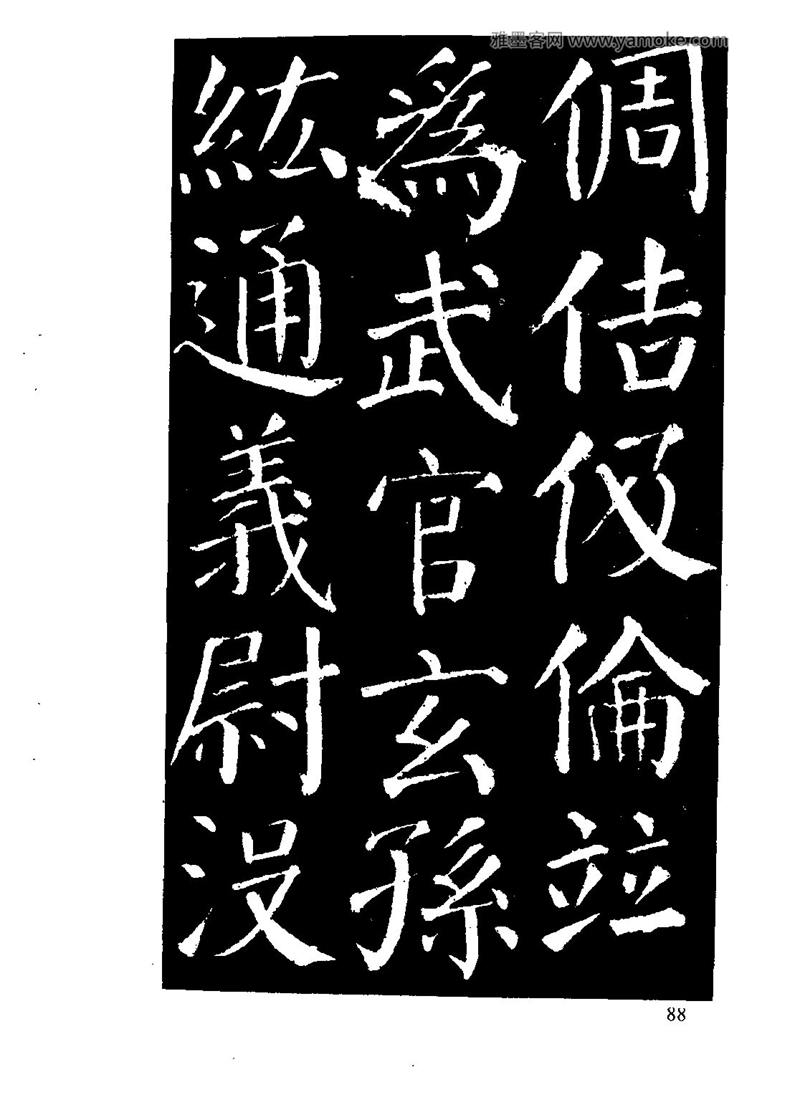 雅墨客网 www.yamoke.com
倜佶伋倫竝
為武官玄孫
紘通義尉没
88